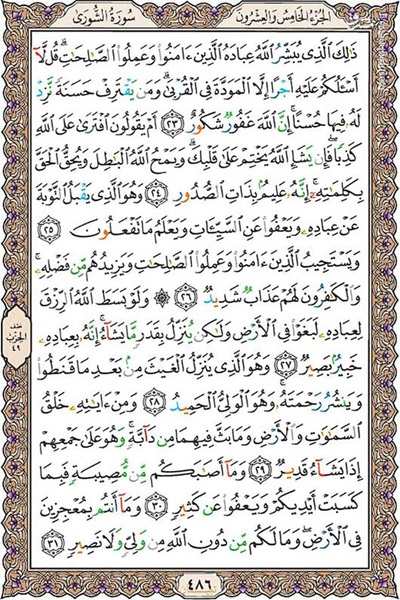 سُورَةُ الشُّورَىٰ
الجُزْءُ الخَامِسُ وَالعِشْرُونَ
ذَٰلِكَ الَّذِي يُبَشِّرُ اللَّهُ عِبَادَهُ الَّذِينَ ءَامَنُوا وَعَمِلُوا الصَّٰلِحَٰتِ ۗ قُل لَّآ
أَسْـَٔلُكُمْ عَلَيْهِ أَجْرًا إِلَّا الْمَوَدَّةَ فِي الْقُرْبَىٰ ۗ وَمَن يَقْتَرِفْ حَسَنَةً نَّزِدْ
لَهُ فِيهَا حُسْنًا ۚ إِنَّ اللَّهَ غَفُورٌ شَكُورٌ ٢٣ أَمْ يَقُولُونَ افْتَرَىٰ عَلَى اللَّهِ
كَذِبًا ۖ فَإِن يَشَإِ اللَّهُ يَخْتِمْ عَلَىٰ قَلْبِكَ ۗ وَيَمْحُ اللَّهُ الْبَٰطِلَ وَيُحِقُّ الْحَقَّ
بِكَلِمَٰتِهِ ۚ إِنَّهُ عَلِيمٌ بِذَاتِ الصُّدُورِ ٢٤ وَهُوَ الَّذِي يَقْبَلُ التَّوْبَةَ
عَنْ عِبَادِهِ وَيَعْفُوا عَنِ السَّيِّـَٔاتِ وَيَعْلَمُ مَا تَفْعَلُونَ ٢٥
وَيَسْتَجِيبُ الَّذِينَ ءَامَنُوا وَعَمِلُوا الصَّٰلِحَٰتِ وَيَزِيدُهُم مِّن فَضْلِهِ ۚ
وَالْكَٰفِرُونَ لَهُمْ عَذَابٌ شَدِيدٌ ٢٦ ۞ وَلَوْ بَسَطَ اللَّهُ الرِّزْقَ
لِعِبَادِهِ لَبَغَوْا فِي الْأَرْضِ وَلَٰكِن يُنَزِّلُ بِقَدَرٍ مَّا يَشَآءُ ۚ إِنَّهُ بِعِبَادِهِ
خَبِيرٌ بَصِيرٌ ٢٧ وَهُوَ الَّذِي يُنَزِّلُ الْغَيْثَ مِن بَعْدِ مَا قَنَطُوا
وَيَنشُرُ رَحْمَتَهُ ۚ وَهُوَ الْوَلِيُّ الْحَمِيدُ ٢٨ وَمِنْ ءَايَٰتِهِ خَلْقُ
السَّمَٰوَٰتِ وَالْأَرْضِ وَمَا بَثَّ فِيهِمَا مِن دَآبَّةٍ ۚ وَهُوَ عَلَىٰ جَمْعِهِمْ
إِذَا يَشَآءُ قَدِيرٌ ٢٩ وَمَآ أَصَٰبَكُم مِّن مُّصِيبَةٍ فَبِمَا
كَسَبَتْ أَيْدِيكُمْ وَيَعْفُوا عَن كَثِيرٍ ٣٠ وَمَآ أَنتُم بِمُعْجِزِينَ
فِي الْأَرْضِ ۖ وَمَا لَكُم مِّن دُونِ اللَّهِ مِن وَلِيٍّ وَلَا نَصِيرٍ ٣١
الحِزْب
٤٩
٤٨٦